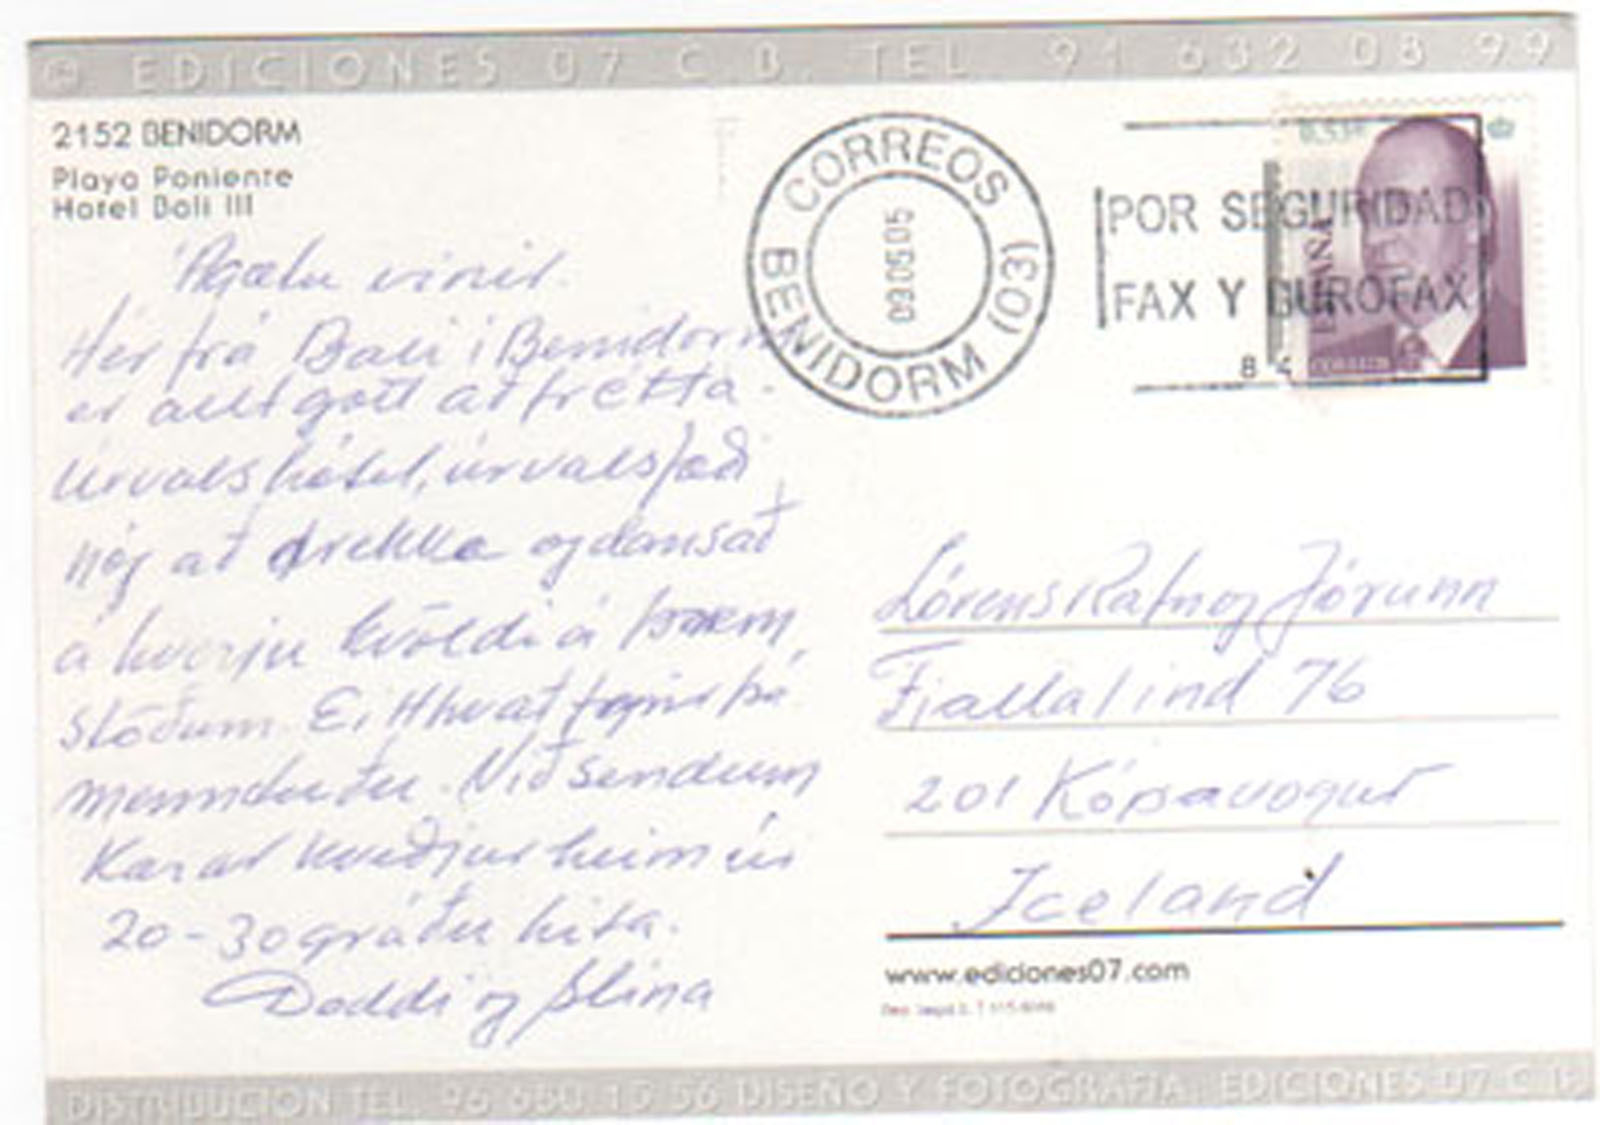 © EDICIONES 07 C.B. TEL. 91 632 08 99
2152 BENIDORM
Playa Poniente
Hotel Bali III
Ágætu vinir.
Hér frá Bali í Benidorm
er allt gott að frétta.
Úrvals hótel, úrvalsfæði
nóg að drekka og dansað
á hverju kvöldi á þrem
stöðum. Eitthvað fyrir þá
menndu Við sendum
Kærar kveðjur heim úr
20-30 gráðu hita.
Doddi og Stína
CORREOS (03) BENIDORM
09.05.05
POR SEGURIDAD
FAX Y BUROFAX
8 4
ESPAÑA
CORREOS
Lórens Rafn og Jórunn
Fjallalind 76
201 Kópavogur
Iceland
www.ediciones07.com
DISTRIBUCION TEL. 96 680 15 56 DISEÑO Y FOTOGRAFIA: EDICIONES 07 C.B.